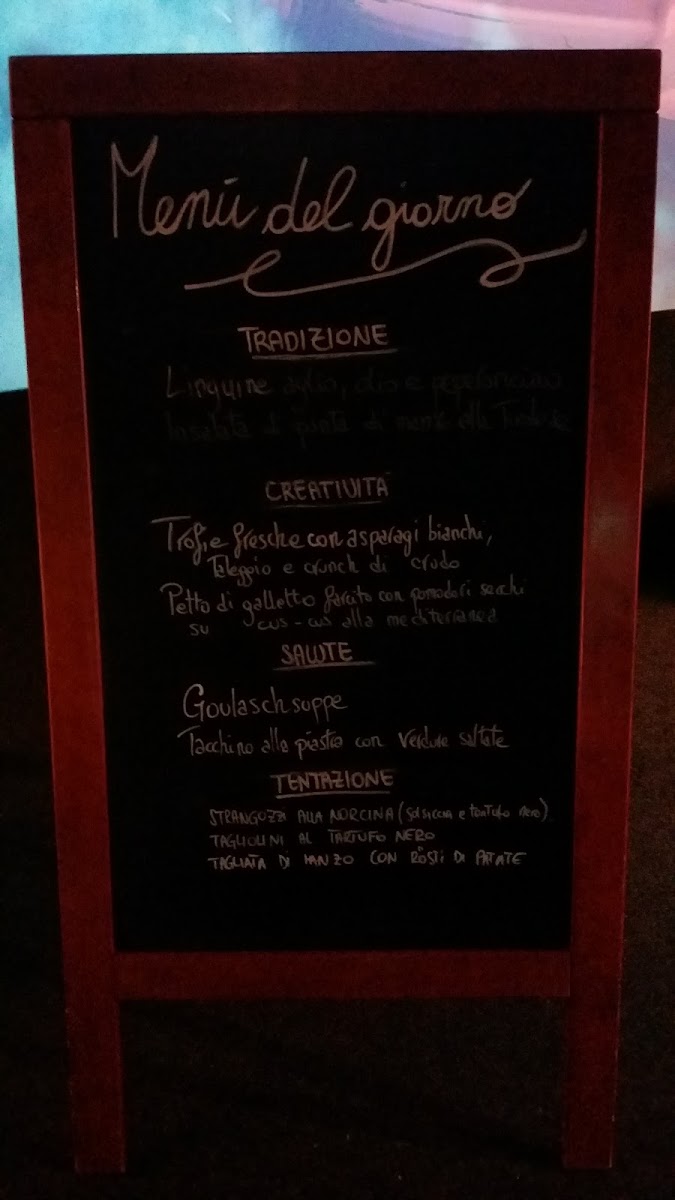 Menù del giorno
TRADIZIONE
Linguine aglio, olio e peperoncino
Insalata di punta di manzo alla
CREATIVITÀ
Trofie fresche con asparagi bianchi,
Taleggio e crunch di crudo
Petto di galletto farcito con pomodori secchi
su cus-cus alla mediterranea
SALUTE
Goulaschsuppe
Tacchino alla piastra con verdure saltate
TENTAZIONE
STRANGOZZI ALLA NORCINA (salsiccia e tartufo nero)
TAGLIOLINI AL TARTUFO NERO
TAGLIATA DI MANZO CON RÖSTI DI PATATE